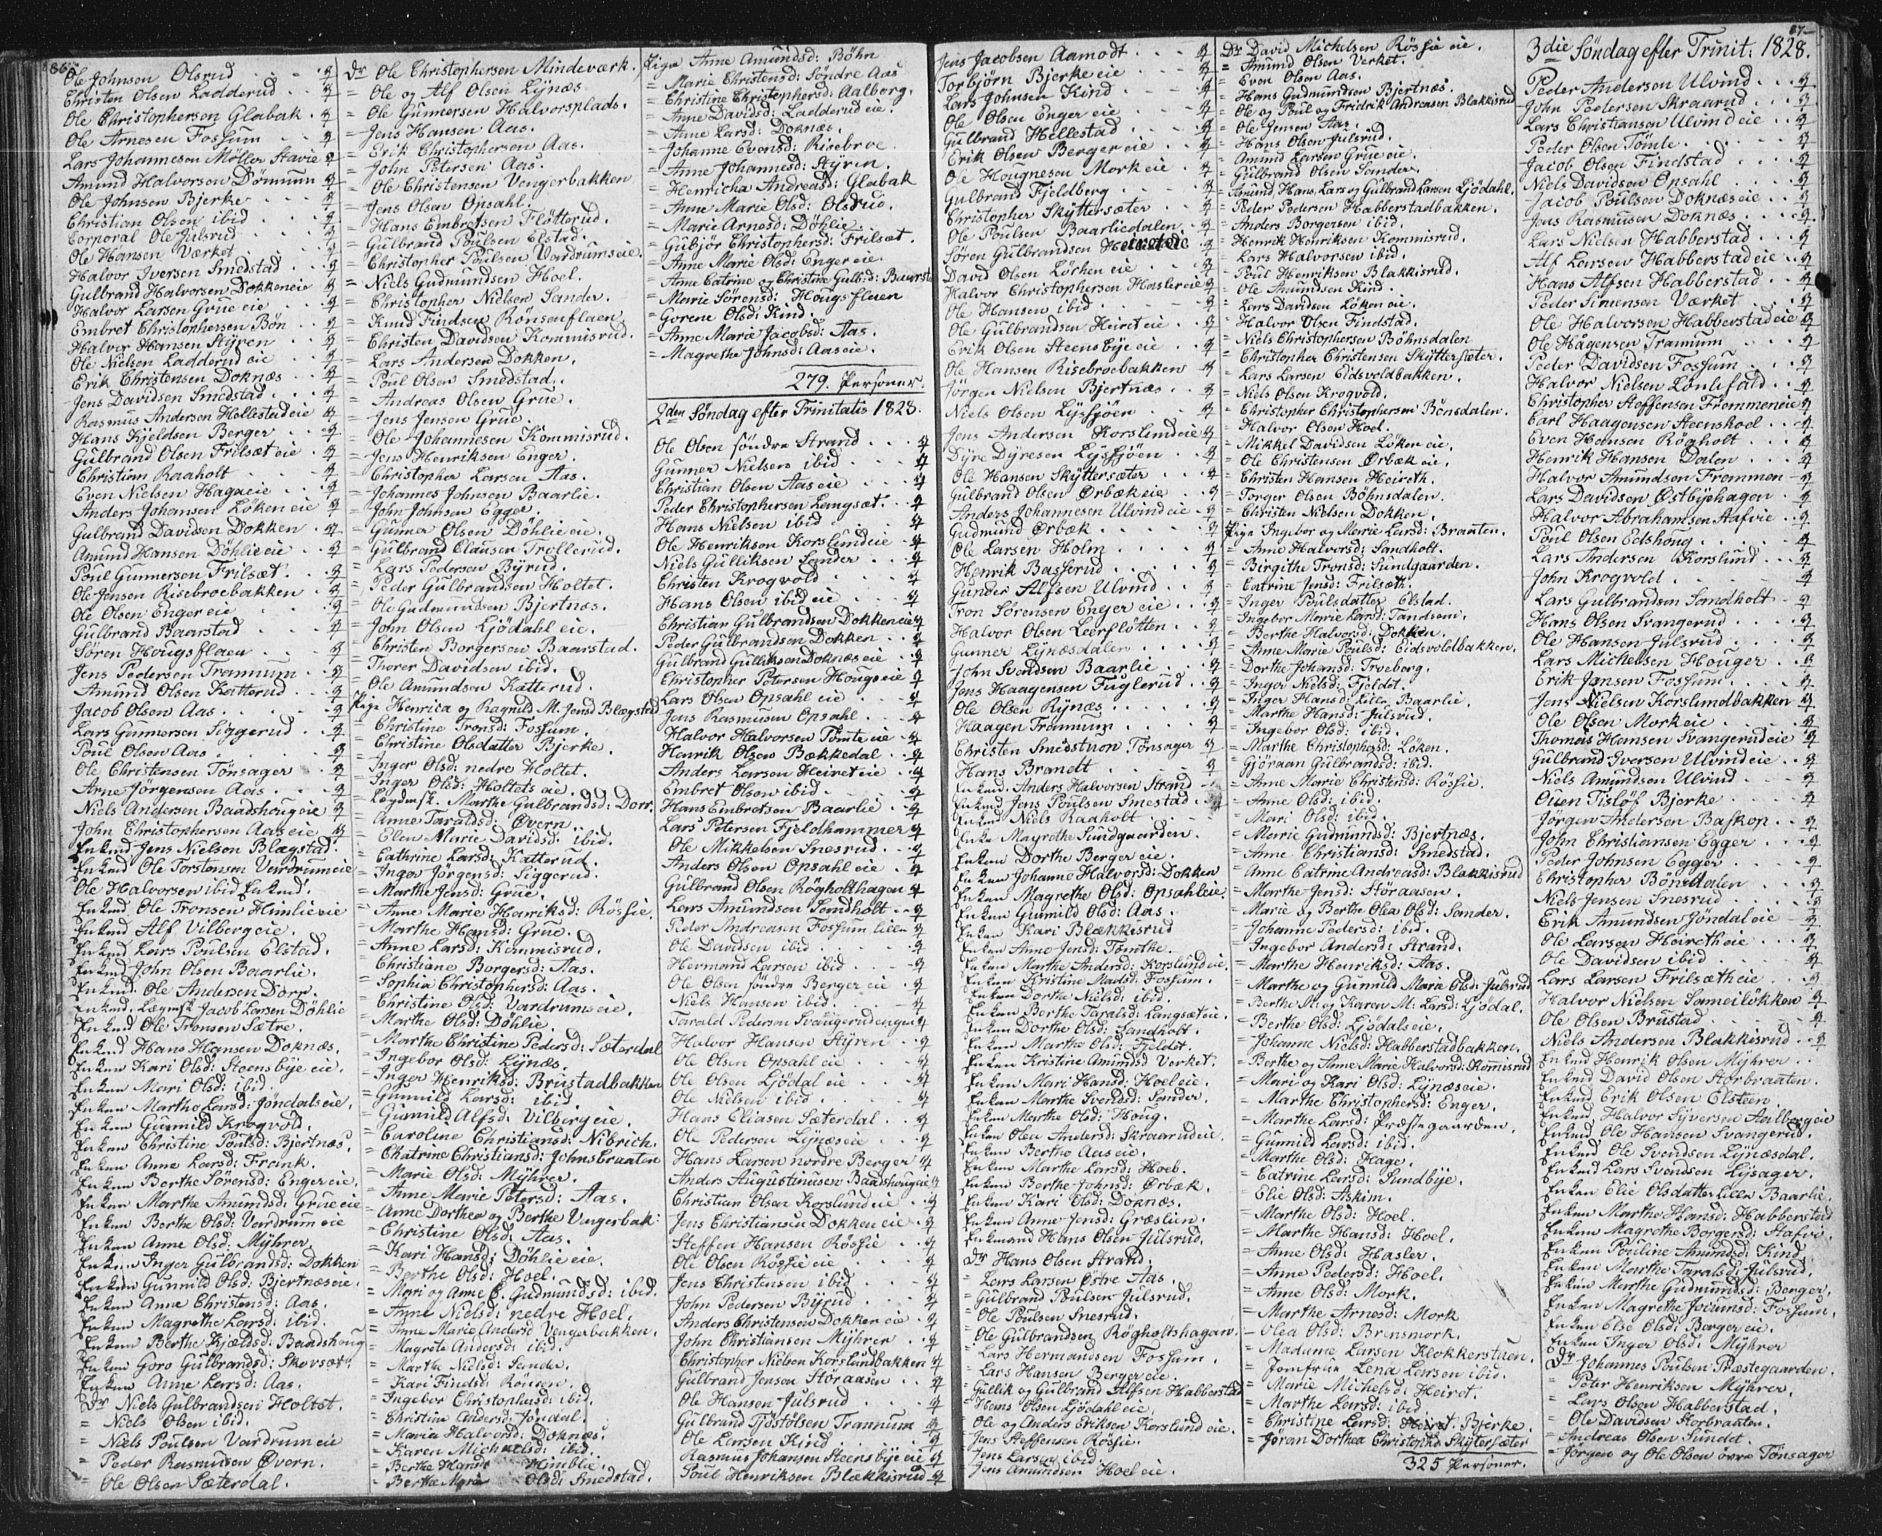 86.
Ole Johnsen Olsrud
Christen Olsen Ladderud
Ole Christophersen Glabak
Ole Arnesen Fossum
Lars Johannesen Møller Stavie
Amund Halvorsen Dømum
Ole Johnsen Bjerke
Christian Olsen ibid
Corporal Ole Julsrud
Ole Hansen Værket
Halvor Iversen Smedstad
Gulbrand Halvorsen Dokkeneie
Halvor Larsen Grue eie
Embret Christophersen Bön
Halvor Hansen Styren
Ole Nielsen Ladderud eie
Erik Christensen Doknæs
Jens Davidsen Smedstad
Rasmus Andersen Hellestad eie
Hans Kjeldsen Berger
Gulbrand Olsen Frilsæt eie
Christian Raaholt
Even Nielsen Haga eie
Anders Johansen Løken eie
Gulbrand Davidsen Dokken
Amund Hansen Döhlie eie
Poul Gunnersen Frilsæt
Ole Jensen Risebroebakken
Ole Olsen Enger eie
Gulbrand Baarstad
Søren Hougsflaen
Jens Pedersen Tramum
Amund Olsen Katterud
Jacob Olsen Aas
Lars Gunnersen Siggerud
Poul Olsen Aas
Ole Christensen Tönsager
Arne Jørgensen Aas
Niels Andersen Baadshoug eie
John Christophersen Aas eie
Enkmd Jens Nielsen Blægstad
Enkmd Ole Torstensen Vardrum eie
Ole Halvorsen ibid Enkmd.
Enkmd Ole Tronsen Himlie eie
Enkmd Alf Vilberg eie.
Enkmd Lars Poulsen Elstad.
Enkmd John Olsen Baarlie.
Enkmd. Ole Andersen Dorr.
Enkmd. Lægmsk Jacob Larsen Döhlie
Enkmd Ole Tronsen Sætre.
Enkmd Hans Hansen Doknæs.
Enken Kari Olsd: Steensbye eie.
Enken Mari Olsd: ibid.
Enken Marthe Larsd: Jöndals eie.
Enken Gunnild Krogvold.
Enken Christine Poulsd: Bjertnæs.
Enken Anne Larsd: Frank.
Enken Berthe Sörensd: Enger eie.
Enken Marthe Amundsd: Grue eie
Enken Berthe Olsd: Vardrum eie
Enken Anne Olsd: Myhrer.
Enken Inger Gulbrandsd: Dokken
Enken Gunnild Olsd: Bjertnæs eie.
Enken Anne Christensd: Aas.
Enken Magrethe Larsd: ibid.
Enken Berthe Kjeldsd: Baadshoug
Enken Goro Gulbrandsd: Skovsæt.
Enken Anne Larsd: Aas.
Dr Niels Gulbrandsen Holtet.
= Niels Olsen ibid.
= Niels Poulsen Vardrum eie
= Peder Rasmussen Øvern.
= Ole Olsen Sæterdal.
Dr Ole Christophersen Mindeværk.
= Ole og Alf Olsen Lynæs.
= Ole Gunnersen Halvorsplads.
= Jens Hansen Aas.
= Erik Christophersen Aas.
= John Petersen Aas.
= Ole Christensen Vengerbakken
= Jens Olsen Opsahl.
= Hans Embretsen Fløtterud.
= Gulbrand Poulsen Elstad.
= Christopher Poulsen Vardrums eie.
= Niels Gudmundsen Hoel.
= Christopher Nielsen Sander.
= Knud Findsen Rønsenflaen.
= Christen Davidsen Kommisrud.
= Lars Andersen Dokken.
= Poul Olsen Smedstad.
= Andreas Olsen Grue.
= Jens Jensen Grue.
= Ole Johannesen Kommisrud.
= Jens Henriksen Enger.
= Christopher Larsen Aas.
= Johannes Johnsen Baarlie.
= John Johnsen Egge.
= Gunner Olsen Döhlie eie.
= Gulbrand Clausen Trollerud.
= Lars Pedersen Byrud.
= Peder Gulbrandsen Holtet.
= Ole Gudmundsen Bjertnæs.
= John Olsen Ljödahl eie.
= Christen Borgersen Baarstad.
= Thorer Davidsen ibid.
= Ole Amundsen Katterud.
Pige Henrica og Ragnild M. Jensd Blægstad
= Christine Tronsd: Fossum.
= Christine Olsdatter Bjerke.
= Inger Olsd: nedre Holtet.
= Inger Olsd: Holtets eie.
= Lægdmsk. Marthe Gulbrandsd: Dorr.
= Anne Taraldsd: Øvern.
= Elen Marie Davidsd: ibid.
= Cathrine Larsd: Katterud.
= Inger Jørgensd: Siggerud.
= Marthe Jensd: Grue.
= Anne Marie Henriksd: Røssie.
= Marthe Hansd: Grue.
= Anne Larsd: Kommisrud.
= Christiane Borgersd: Aas.
= Sophia Christophersd: Aas.
= Christine Olsd: Vardrums eie.
= Marthe Olsd: Döhlie.
= Marthe Christine Pedersd: Sæterdal
= Ingebor Olsd: Lynæs.
= Inger Henriksd: Brustadbakken
= Gunnild Larsd: ibid
= Gunnild Alfsd: Vilberg eie.
= Caroline Christiansd: Nibrich.
= Chatrine Christiansd: Johnsbraaten
= Marie Olsd: Myhrer.
= Anne Marie Petersd: Aas.
= Anne Dorthea og Berthe Vengerbak:
= Christine Olsd: Aas.
= Kari Hansd: Döhlie eie.
= Berthe Olsd: Hoel.
= Mari og Anne C. Gudmundsd: ibid.
= Anne Nielsd: nedre Hoel.
= Anne Marie Anderic Vengerbakken.
= Magrete Andersd: ibid.
= Marthe Nielsd: Sander.
= Kari Findsd: Rönsen.
= Ingebor Christophersd: ibid.
= Christine Andersd: Jöndal.
= Maria Halvorsd: Doknæs.
= Karen Michaelsd: ibid.
= Berthe Hansd Himblie.
= Berthe Marie Olsd: Smedstad.
Pigen Anne Amundsd: Böhn
= Marie Christensd: Søndre Aas
= Christine Christophersd: Aalborg.
= Anne Davidsd: Ladderud eie.
= Anne Larsd: Doknæs.
= Johanne Evensd: Risebroe.
= Anne Johannesd: Styren.
= Henricha Andreasd: Glabak
= Anne Marie Olsd: Olsrud.
= Marie Arnesd: Döhlie.
= Gubjör Christophersd: Frilsæt.
= Anne Marie Olsd: Enger eie.
= Anne Catrine og Christine Gulbd: Baarsta
= Marie Sørensd: Hougsflaen
= Gorene Olsd: Kind.
= Anne Marie Jacobsd: Aas.
= Magrethe Johnsd: Aas eie.
279. Personer.
2den Søndag efter Trinitatis 1828.
Ole Olsen söndre Strand
Gunner Nielsen ibid
Christian Olsen Aas eie
Peder Christophersen Langsæt
Hans Nielsen ibid
Ole Henriksen Korslund eie
Niels Gulliksen Sander
Christen Krogvold
Hans Olsen ibid eie
Christian Gulbrandsen Dokken eie
Peder Gulbrandsen Dokken
Gulbrand Gulliksen Doknæs eie
Christopher Petersen Hougs eie
Lars Olsen Opsahl eie
Jens Rasmusen Opsahl
Halvor Halvorsen Tömte eie
Henrik Olsen Bækkedal
Anders Larsen Heiret eie
Embret Olsen ibid
Hans Embretsen Baarlie
Lars Petersen Fjeldhammer
Ole Mikkelsen Snesrud
Anders Olsen Opsahl eie
Gulbrand Olsen Rögholthagen
Lars Amundsen Sandholt
Peder Andreasen Fossum lille
Ole Davidsen ibid
Hermand Larsen ibid
Ole Olsen søndre Berger eie
Niels Hansen ibid
Tarald Pedersen Svangerudengen
Halvor Hansen Styren
Ole Olsen Opsahl eie
Ole Olsen Ljödal eie
Ole Nielsen ibid
Hans Eliasen Sæterdal
Ole Pedersen Lynæs eie
Hans Larsen nordre Berger
Anders Augustinusen Baadshoug eie
Christian Olsen Korslund eie
Jens Christiansen Dokken eie
Steffen Hansen Røssie
Ole Olsen Røssie eie
Jens Christensen ibid
John Pedersen Byrud
Anders Christensen Dokken eie
John Christiansen Myhrer
Christopher Nielsen Korslundbakken
Gulbrand Jensen Störaasen
Ole Hansen Julsrud
Gulbrand Tjöstölsen Tramum
Ole Larsen Kind
Rasmus Johansen Steensbye eie
Poul Henriksen Blækkisrud
Jens Jacobsen Aamodt
Torbjörn Bjerke eie
Lars Johnsen Kind
Ole Olsen Enger eie
Gulbrand Hellestad
Erik Olsen Berger eie
Ole Hougnesen Mork eie
Gulbrand Fjeldberg
Christopher Skyttersæter
Ole Poulsen Baarliedalen
Søren Gulbrandsen
David Olsen Löchen eie
Halvor Christophersen Hasler eie
Ole Hansen ibid
Ole Gulbrandsen Heiret eie
Erik Olsen Steensbye eie
Ole Hansen Risebroebakken
Jørgen Nielsen Bjertnæs
Niels Olsen Lysfjöen
Jens Andersen Korslund eie
Dyre Dyresen Lysfjöen
Ole Hansen Skyttersæter
Gulbrand Olsen Ørbæk eie
Anders Johannesen Ulvind eie
Gudmund Ørbæk
Ole Larsen Holm
Henrik Basserud
Gunder Alfsen Ulvind
Tron Sörensen Enger eie
Halvor Olsen Leerflötten
Gunner Lynæsdalen
John Svendsen Baarlie
Jens Haagensen Fuglerud
Ole Olsen Rynæs
Haagen Trammum
Christen Smedstuen Tönsager
Hans Brandt
Enkmd. Anders Halvorsen Strand
Enkmd Jens Poulsen Smestad
Enkmd Niels Raaholt
Enke Magrethe Sundgaarden
Enken Dorthe Berger eie.
Enken Johanne Halvorsd: Dokken
Enken Magrethe Olsd: Opsahl eie.
Enken Gunnild Olsd: Aas.
Enken Kari Blækkisrud
Enken Anne Jensd: Tömthe.
Enken Marthe Andersd: Korslund eie.
Enken Kristine Madsd: Fossum.
Enken Dorthe Nielsd: ibid.
Enken Berthe Taralsd: Langsæt eie.
Enken Dorthe Olsd: Sandholt.
Enken Marthe Olsd: Fjeldet.
Enken Kristine Amundsd Verket.
Enken Mari Hansd: Hoel eie.
Enken Marthe Svendsd: Sander.
Enken Marthe Olsd: Houg.
Enken Olea Andersd: Skraarud eie.
Enken Berthe Aas eie.
Enken Marthe Larsd: Hoel.
Enken Berthe Johnsd: Ørbæk.
Enken Kari Olsd: Doknæs.
Enken Anne Jensd: Grøslien.
Enkemand Hans Olsen Julsrud.
Dr Hans Olsen Strand.
= Lars Larsen Østre Aas.
= Gulbrand Poulsen Julsrud.
= Ole Poulsen Snesrud.
= Ole Gulbrandsen Røgholtshagan.
= Lars Hermandsen Fossum.
= Lars Hansen Berger eie.
= Gullik og Gulbrand Alfsen Habberstad
= Hans Olsen Ljödahl eie.
= Ole og Anders Eriksen Korslund eie
= Jens Steffensen Røssie.
= Jens Larsen ibid
= Jens Amundsen Hoel eie.
87.
Dr David Michelsen Røssie eie.
= Amund Olsen Verket.
= Even Olsen Aas.
= Hans Gudmundsen Bjertnæs.
= Ole og Poul og Fridrik Andreasen Blakkisrud
= Ole Jensen Aas.
= Hans Olsen Julsrud.
= Amund Larsen Grue eie.
= Gulbrand Olsen Sander.
= Amund Hans, Lars og Gulbrand Larsen Ljödahl.
= Peder Pedersen Habberstadbakken.
= Anders Borgersen ibid.
= Henrik Henriksen Kommisrud.
= Lars Halvorsen ibid.
= Poul Henriksen Blakkisrud.
= Ole Amundsen Kind.
= Lars Davidsen Løken eie.
= Halvor Olsen Findstad.
= Niels Christophersen Böhnsdalen
= Christopher Christensen Skyttersæter.
= Lars Larsen Eidsvoldbakken.
= Niels Olsen Krogvold.
= Christopher Christophersen Bönsdalen.
= Halvor Olsen Hoel.
= Mikkel Davidsen Løken eie.
= Ole Christensen Ørbæk eie.
= Christen Hansen Heireth.
= Torger Olsen Böhnsdalen.
= Christen Nielsen Dokken.
Pige Ingebor og Marie Larsd: Braaten.
= Anne Halvorsd: Sandholt.
= Birgithe Tronsd: Sundgaarden.
= Catrine Jensd: Frilsæth.
= Inger Poulsdatter Elstad.
= Ingebor Marie Larsd: Tandsenie.
= Berthe Halvorsd: Dokken.
= Anne Marie Poulsd: Eidsvoldbakken.
= Dorthe Johansd: Troeborg.
= Inger Nielsd: Fjeldet.
= Inger Hansd: Lille Baarlie.
= Marthe Hansd: Julsrud.
= Ingebor Olsd: ibid.
= Marthe Christophersd: Løken.
= Gjöraan Gulbrandsd: ibid.
= Anne Marie Christensd: Røssie.
= Anne Olsd: ibid.
= Mari Olsd: ibid.
= Marie Gudmundsd: Bjertnæs.
= Anne Christiansd: Smedstad.
= Anne Catrine Andreasd: Blakkisrud
= Marthe Jensd: Störaasen.
= Marie og Berthe Olea Olsd: Sander.
= Johanne Pedersd: ibid.
= Ingebor Andersd: Strand.
= Marthe Henriksd: Aas.
= Marthe og Gunnild Maria Olsd: Julsrud
= Berthe M. og Karen M. Larsd: Ljödal.
= Berthe Olsd: Ljödals eie.
= Johanne Nielsd: Habberstadbakken.
= Berthe og Anne Marie Halvorsd: Komisrud
= Mari og Kari Olsd: Lynæs eie.
= Marthe Christophersd: Enger.
= Marthe Larsd: Præstegaarden.
= Gunnild Larsd: ibid.
= Marthe Olsd: Hage.
= Catrine Larsd: Sundbye.
= Elie Olsd: Askim.
= Marthe Olsd: Hoel.
= Marthe Hansd: Hoel.
= Anne Olsd: Hasler.
= Anne Pedersd: Hoel.
= Anne Olsd: Mork.
= Marthe Arnesd: Mork
= Olea Olsd: Brensmork.
= Madame Larsen Klokkerstuen.
= Jomfrue Lena Larsen ibid.
= Marie Michelsd: Heiret.
= Marthe Larsd: ibid.
= Christine Larsd: Bjerke.
= Jöran Dorthea Christophd Skytersæter
325 Personer.
3die Søndag efter Trinit. 1828.
Peder Andersen Ulvind
John Pedersen Skraarud
Lars Christiansen Ulvind eie
Peder Olsen Tömte
Jacob Olsen Findstad
Niels Davidsen Opsahl
Jacob Poulsen Doknæs eie
Jens Rasmussen Doknæs
Lars Nielsen Habberstad
Alf Larsen Habberstad eie
Hans Alfsen Habberstad
Peder Simensen Værket
Ole Halvorsen Habberstad eie
Ole Hagensen Tramum
Peder Davidsen Fossum
Halvor Nielsen Lønlefald
Christopher Steffensen Trommen eie
Carl Haagensen Steenshoel
Even Hansen Røgholt
Henrik Hansen Dalen
Halvor Amundsen Trommen
Lars Davidsen Østbyehagen
Halvor Abrahamsen Hafvie
Poul Olsen Edshoug
Lars Andersen Korslund
John Krogvold
Lars Gulbrandsen Sandholt
Hans Olsen Svangerud
Ole Hansen Julsrud
Lars Michelsen Houger
Erik Jensen Fossum
Jens Nielsen Korslundbakken
Ole Olsen Mork eie
Thomas Hansen Svangerud eie
Gulbrand Iversen Ulvind eie
Niels Amundsen Ulvind
Ouen Tisløf Bjerke
Jørgen Andersen Baskop
John Christiansen Egger
Peder Johnsen Egger
Christopher Bönsdalen
Niels Jensen Snesrud
Erik Amundsen Jøndal eie
Ole Larsen Heireth eie
Ole Davidsen ibid
Lars Larsen Frilsæth eie
Halvor Nielsen Sameiløkken
Ole Olsen Brustad
Niels Andersen Blakkisrud
Enkmd Henrik Olsen Myhrer
Enkmd David Olsen Storbraaten.
Enkmd Erik Olsen Elstien
Enkmd Halvor Syversen Aalberg eie
Enkmd Ole Hansen Svangerud.
Enkmd Ole Svendsen Lynæsdal.
Enkmd Lars Svendsen Lysager.
Enken Elie Olsdatter Lille Baarlie.
Enken Marthe Hansd: Habberstad
Enken Magrethe Borgersd: Hafvi.
Enken Pouline Amundsd: Kind
Enken Marthe Taralsd: Julsrud.
Enken Marthe Gudmundsd: Berger.
Enken Magrethe Jorumsd: Fossum.
Enken Else Olsd: Berger eie.
Enken Inger Olsd: Myhrer
Dr Johannes Poulsen Præstegaarden.
= Peter Henriksen Myhrer.
= Lars Olsen Halberstad.
= Ole Davidsen Storbraaten.
= Andreas Olsen Sundet.
= Jörgen og Ole Olsen övre Tönsager